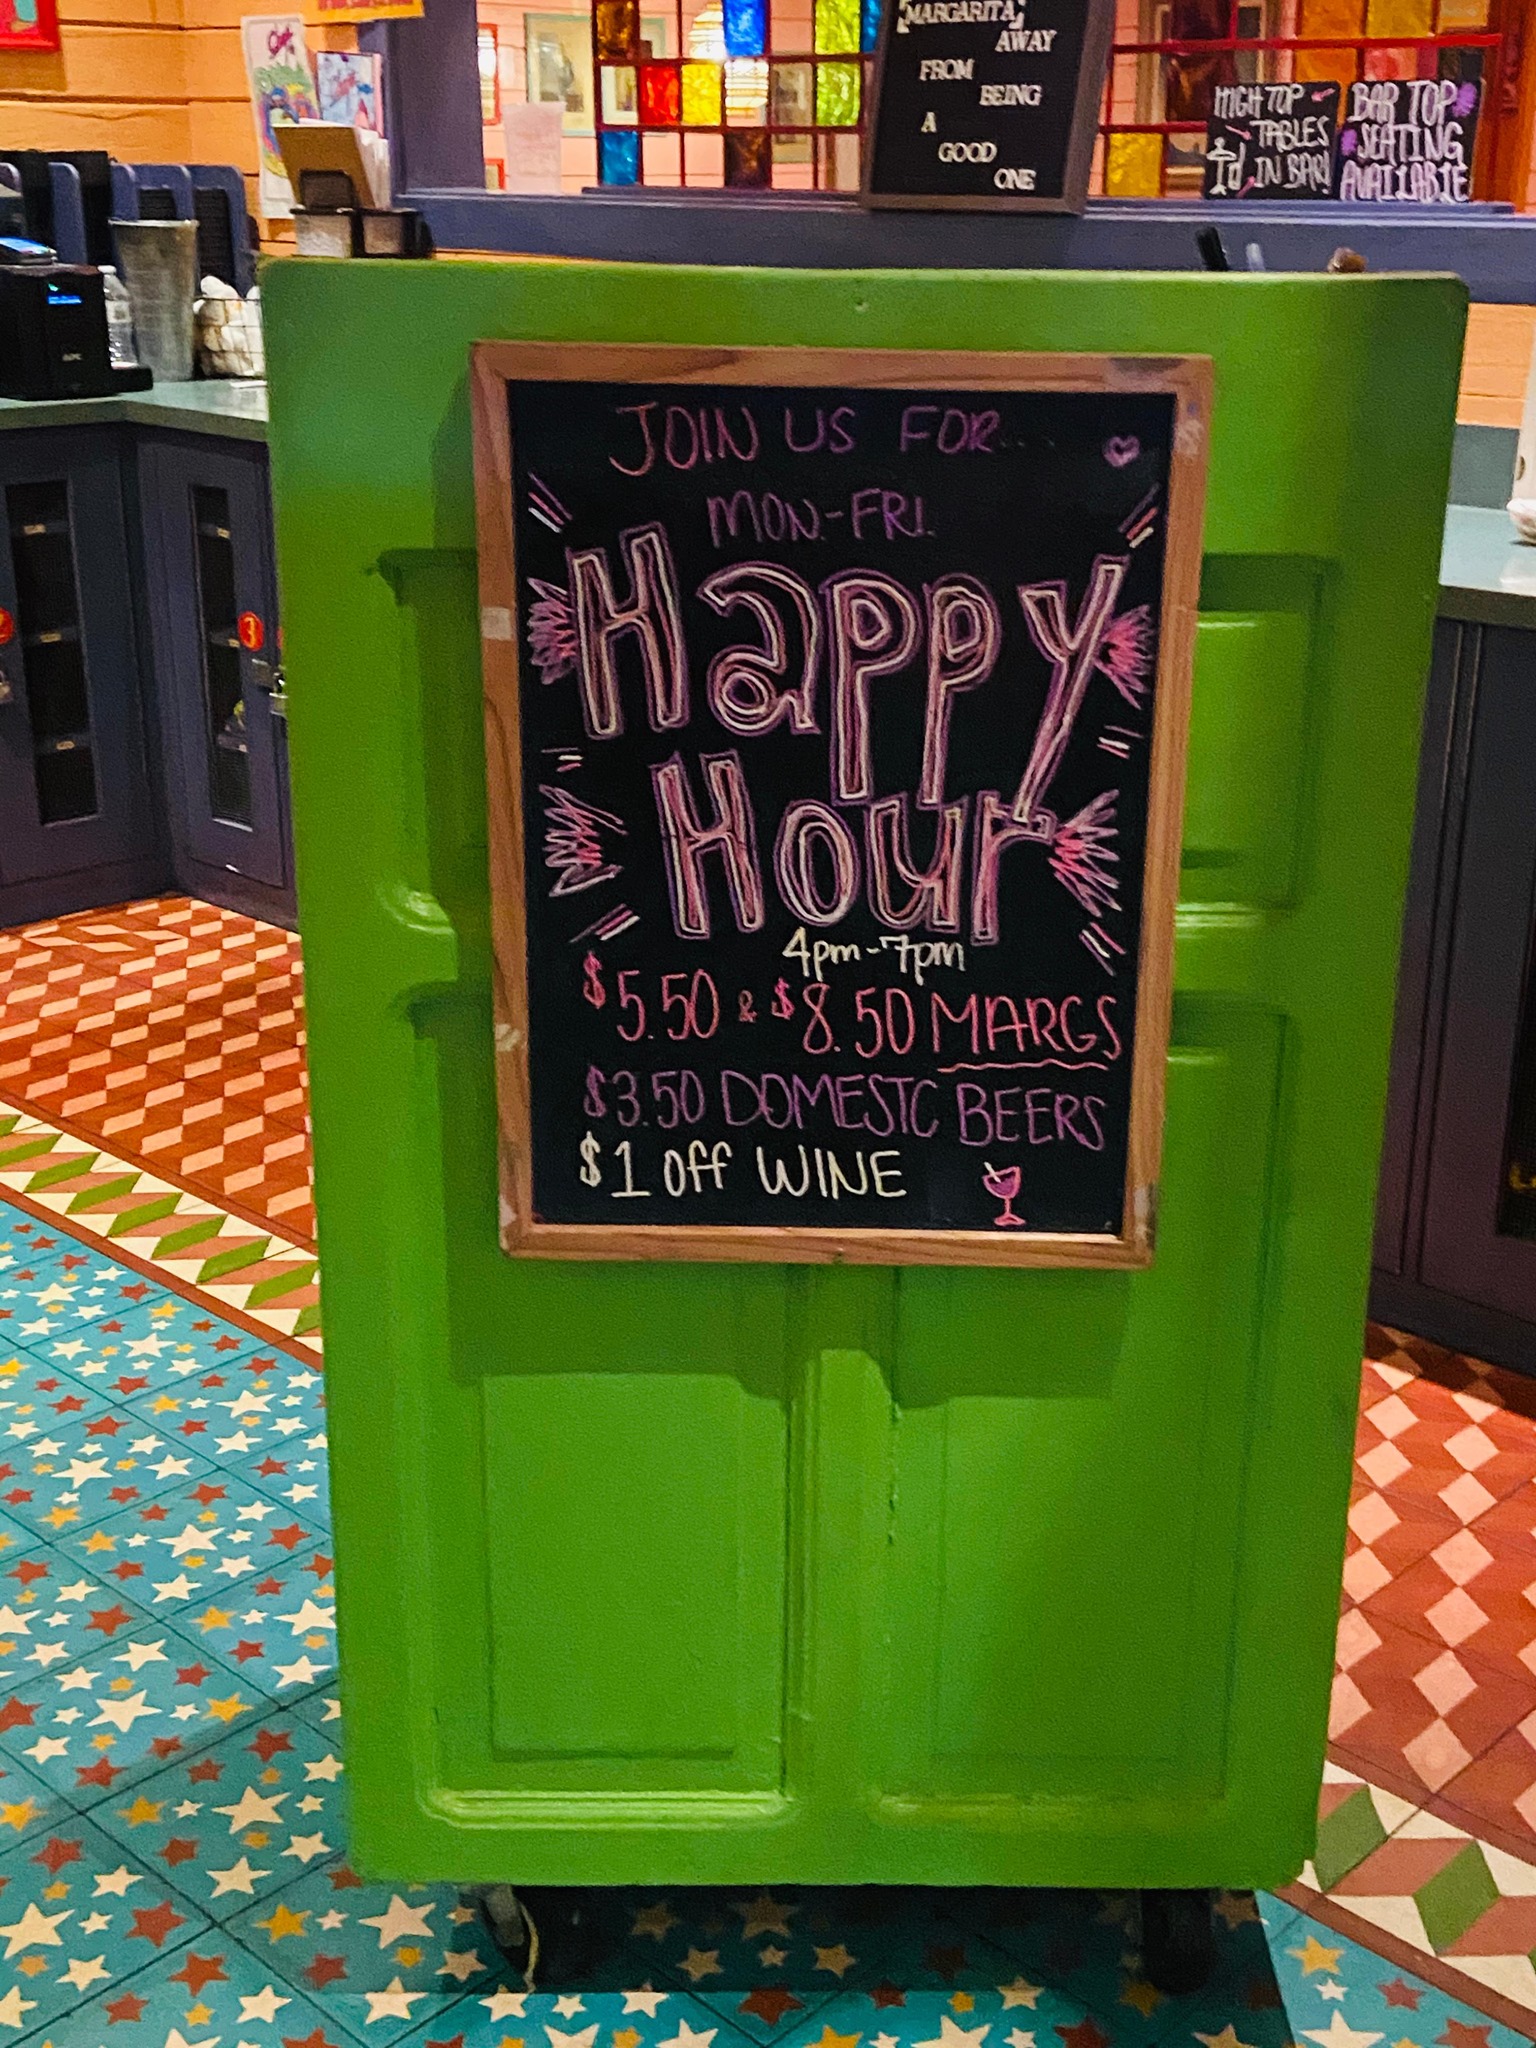 MARGARITA
AWAY
FROM
BEING
A
GOOD
ONE
HIGH TOP
TABLES
IN BAR!
BAR TOP
SEATING
AVAILABLE
JOIN US FOR...
MON.-FRI.
Happy
Hour
4pm-7pm
$5.50 & $8.50 MARGS
$3.50 DOMESTC BEERS
$1 off WINE
3